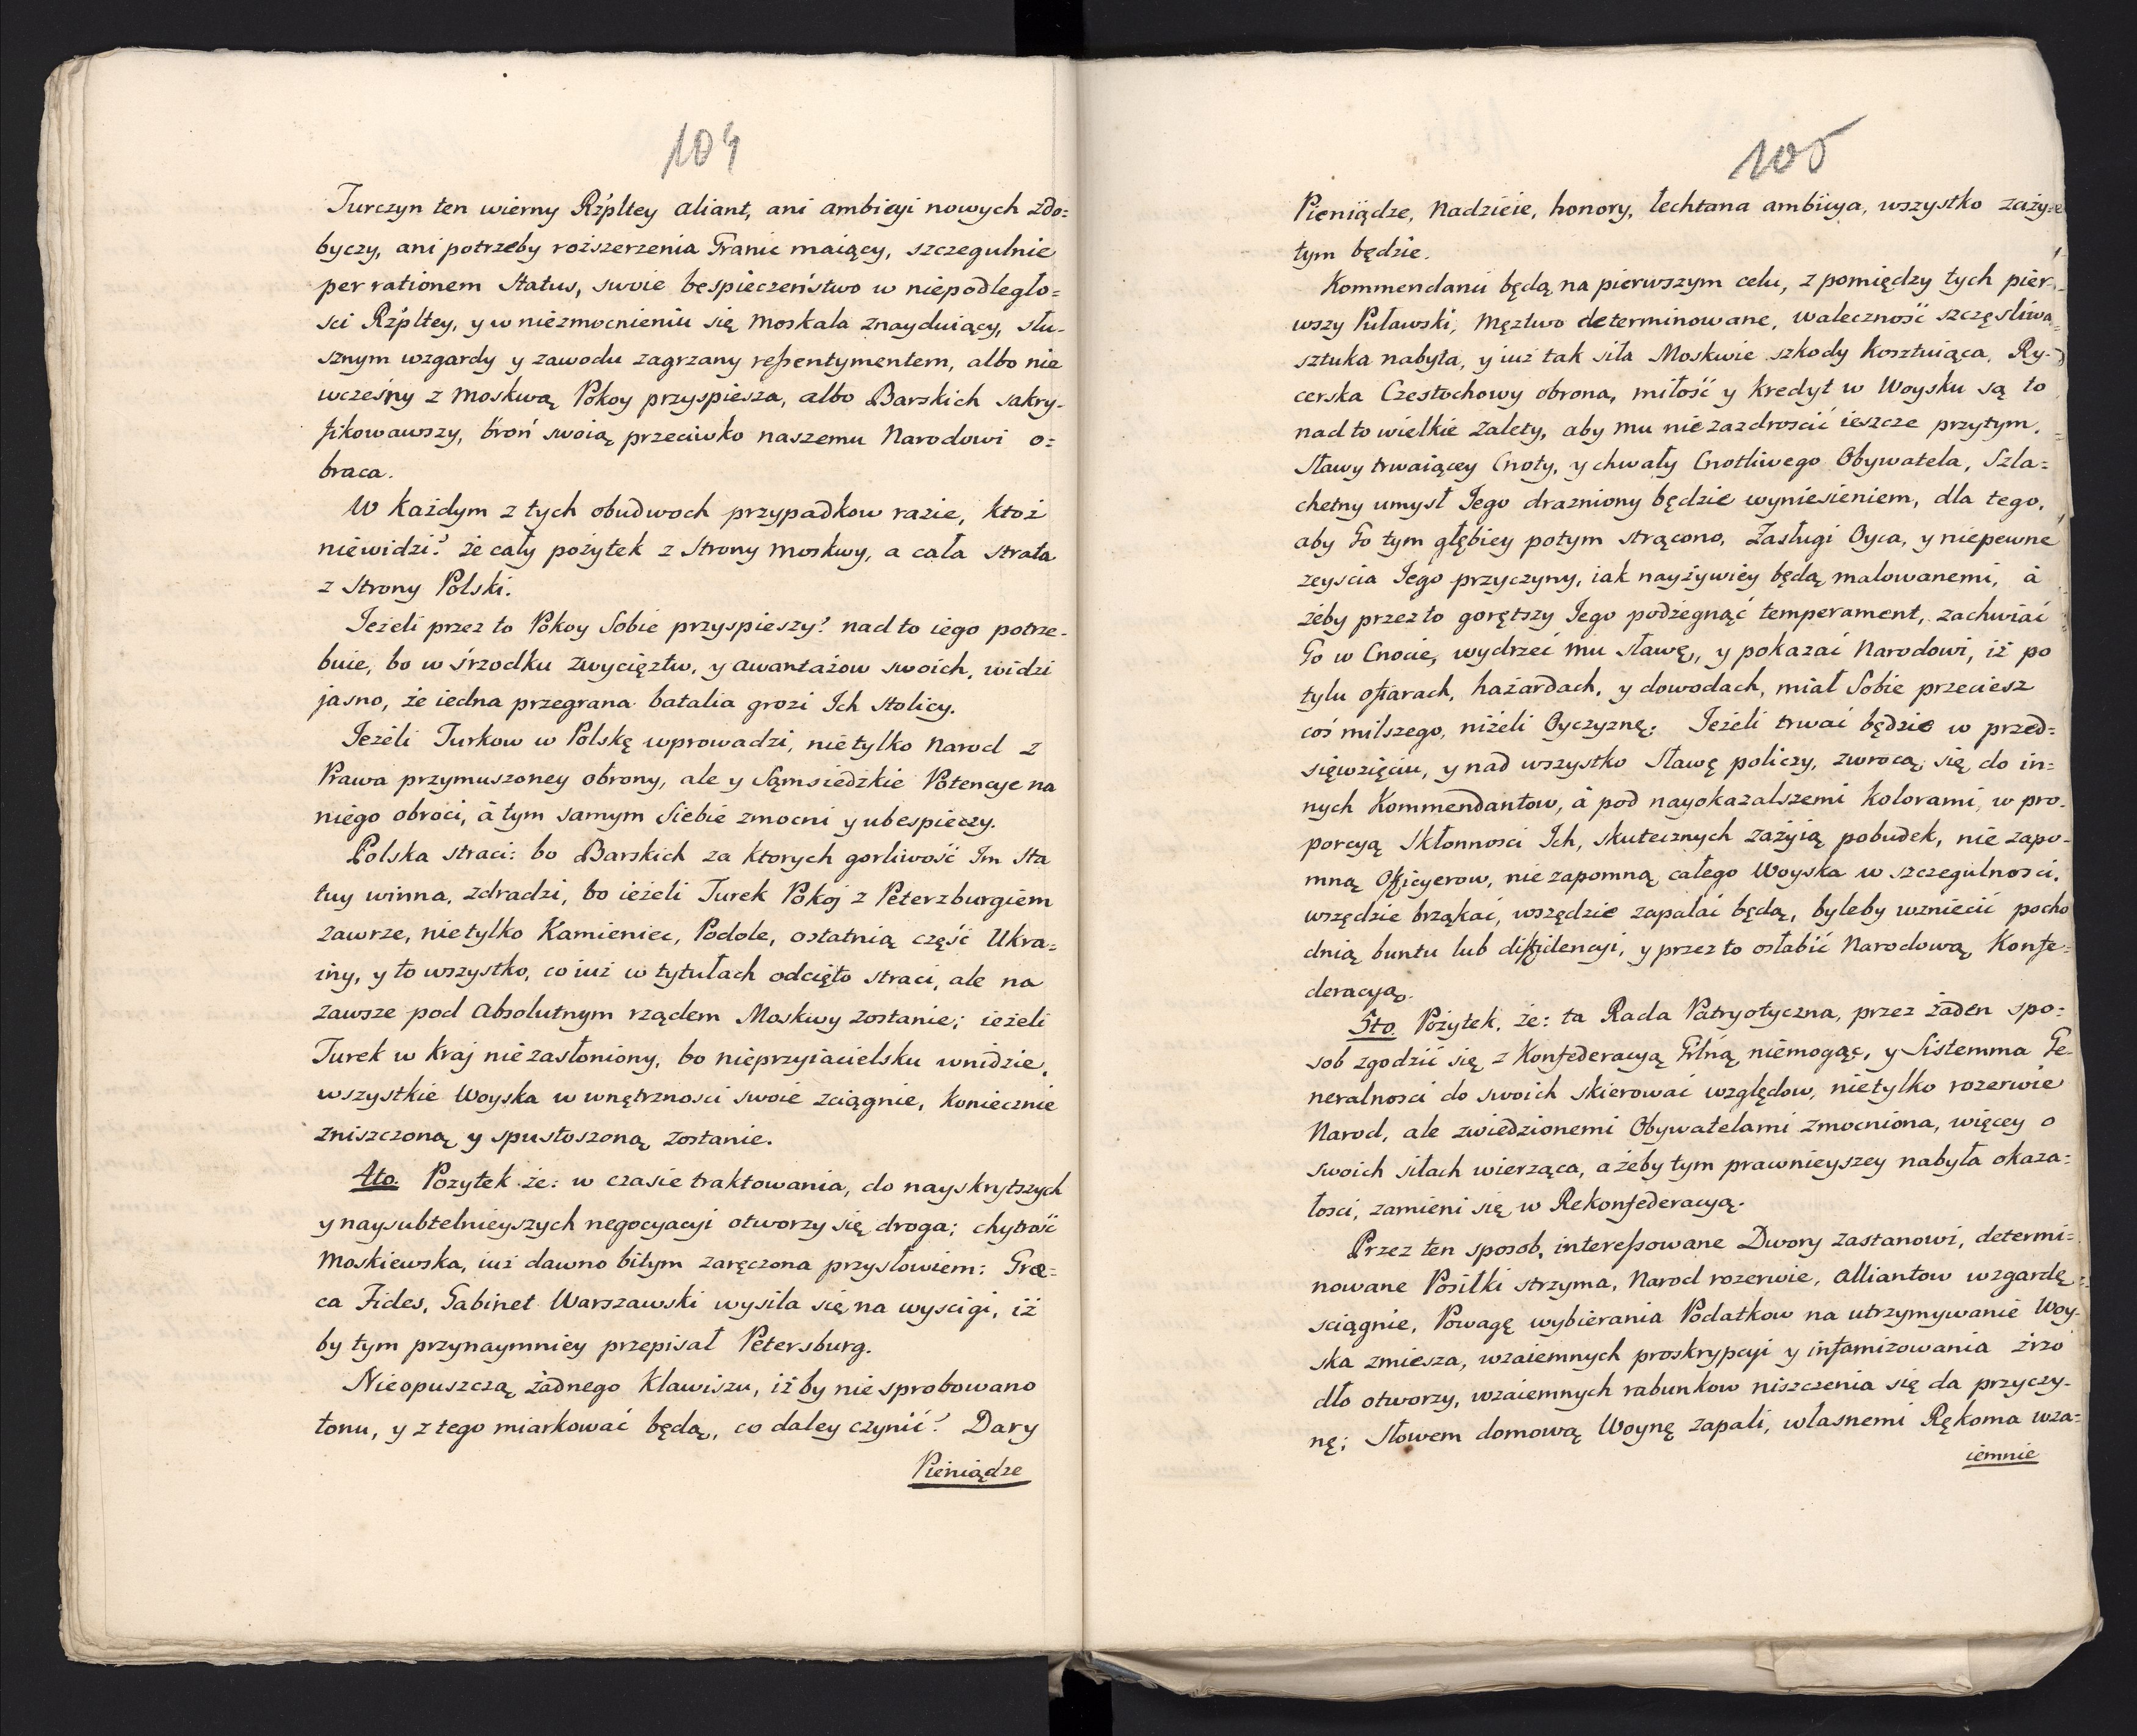 104
Turczyn ten wierny Rzpltey aliant, ani ambicyi nowych zdo=
byczy, ani potrzeby rozszerzenia Granic maiący, szczegulnie
per rationem Status, swoie bespieczeństwo w niepodległo=
sci Rzpltey, y w niezmocnieniu się Moskala znayduiący, słu-
sznym wzgardy y zawodu zagrzany ressentymentem, albo nie
wczesny z Moskwą Pokoy przyspiesza, albo Barskich sakry-
fikowawszy, broń swoią przeciwko naszemu Narodowi o=
braca.
W każdym z tych obudwoch przypadkow razie, ktoż
niewidzi? że cały pożytek z Strony Moskwy, a cała strata
z Strony Polski.
Jeżeli przez to Pokoy Sobie przyspieszy? nad to iego potrze-
buie, bo w śrzodku zwycięztw, y awantażow swoich, widzi
jasno, że iedna przegrana batalia grozi Ich stolicy.
Jeżeli Turkow w Polskę wprowadzi, nietylko Narod z
Prawa przymuszoney obrony, ale y Sąmsiedzkie Potencye na
niego obroci, à tym samym Siebie zmocni y ubespieczy.
Polska straci: bo Barskich za ktorych gorliwość Im Sta
tuy winna, zdradzi, bo ieżeli Turek Pokoj z Peterzburgiem
zawrze, nietylko Kamieniec, Podole, ostatnią część Ukra=
iny, y to wszystko, co iuż w tytułach odcięto straci, ale na
zawsze pod Absolutnym rządem Moskwy zostanie; ieżeli
Turek w Kraj niezasłoniony, bo nieprzyiacielsku wnidzie,
wszystkie Woyska w wnętrznosci swoie zciągnie, koniecznie
zniszczoną y spustoszoną zostanie.
4to. Pożytek że: w czasie traktowania, do nayskrytszych
y naysubtelnieyszych negocyacyi otworzy się droga; chytrość
Moskiewska, iuż dawno bitym zaręczona przysłowiem: Græ=
ca Fides, Gabinet Warszawski wysila się na wyscigi, iż
by tym przynaymniey przepisał Petersburg.
Nieopuszczą żadnego Klawiszu, iż by nie sprobowano
tonu, y z tego miarkować będą, co daley czynić? Dary
Pieniądze
105
Pieniądze, Nadzieie, honory, łechtana ambicya, wszystko zaży=
tym będzie.
Kommendanci będą na pierwszym celu, z pomiędzy tych pier-
wszy Puławski, Męztwo determinowane, waleczność szczęśliwa,
sztuka nabyta, y iuż tak siła Moskwie szkody kosztuiąca, Ry-
cerska Częstochowy obrona, miłość y kredyt w Woysku są to
nad to wielkie Zalety, aby mu niezazdroscić ieszcze przytym,
Sławy trwaiącey Cnoty, y chwały Cnotliwego Obywatela, Szla=
chetny umysł Jego drażniony będzie wyniesieniem, dla tego,
aby Go tym głębiey potym strącono, Zasługi Oyca, y niepewne
zeyscia Jego przyczyny, iak nayżywiey będą malowanemi, à
żeby przez to gorętszy Jego podżegnąć temperament, zachwiać
Go w Cnocie, wydrzeć mu sławę, y pokazać Narodowi, iż po
tylu ofiarach, hazardach, y dowodach, miał Sobie przeciesz
coś milszego, niżeli Oyczyznę; Jeżeli trwać będzie w przed=
sięwzięciu, y nad wszystko Sławę policzy, zwrocą się do in=
nych Kommendantow, à pod nayokazalszemi kolorami, w pro-
porcyą Skłonnosci Ich, skutecznych zażyią pobudek, nie zapo-
mną Officyerow, nie zapomną całego Woyska w szczegulnosci,
wszędzie brząkać, wszędzie zapalać będą, byleby wzniecić pocho
dnią buntu lub diffidencyi, y przez to osłabić Narodową Konfe=
deracyą.
5to. Pożytek, że: ta Rada Patryotyczna, przez żaden spo=
sob zgodzić się z Konfederacyą Grlną niemogąc, y Sistemma Ge-
neralnosci do swoich skierować względow, nietylko rozerwie
Narod, ale zwiedzionemi Obywatelami zmocniona, więcey o
swoich siłach wierząca, ażeby tym prawnieyszey nabyła okaza=
łosci, zamieni się w Rekonfederacyą.
Przez ten sposob, interessowane Dwory zastanowi, determi=
nowane Posiłki strzyma, Narod rozerwie, Alliantow wzgardę
sciągnie, Powagę wybierania Podatkow na utrzymywanie Woy-
ska zmiesza, wzaiemnych proskrypcyi y infamizowania żrzo
dło otworzy, wzaiemnych rabunkow niszczenia się da przyczy-
nę; Słowem domową Woynę zapali, własnemi Rękoma wza=
iemnie